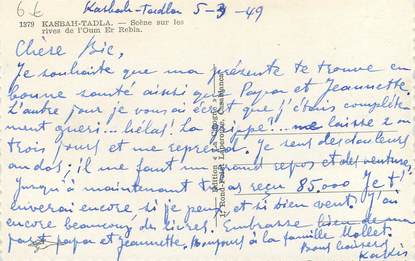 6 €
Kasbah-Tadla 5-3-49
1379 KASBAH-TADLA. — Scène sur les
rives de l'Oum Er Rebia.
Chère Bic,
Je souhaite que ma présente te trouve en
bonne santé ainsi que Papa et Jeannette.
L'autre jour je vous ai écrit que j'étais complète-
ment guéri... hélas! la grippe... me laisse
trois jours et me reprend. Je sens des douleurs
au dos: il me faut un grand repos et des ventouses
Jusqu'à maintenant tu as reçu 85.000 Je t'
enverai encore si je peux et si bien vent. J'ai
encore beaucoup de livres. Embrasse bien de ma
part papa et Jeannette. Bonjours à la famille Mollet.
Bons baisers